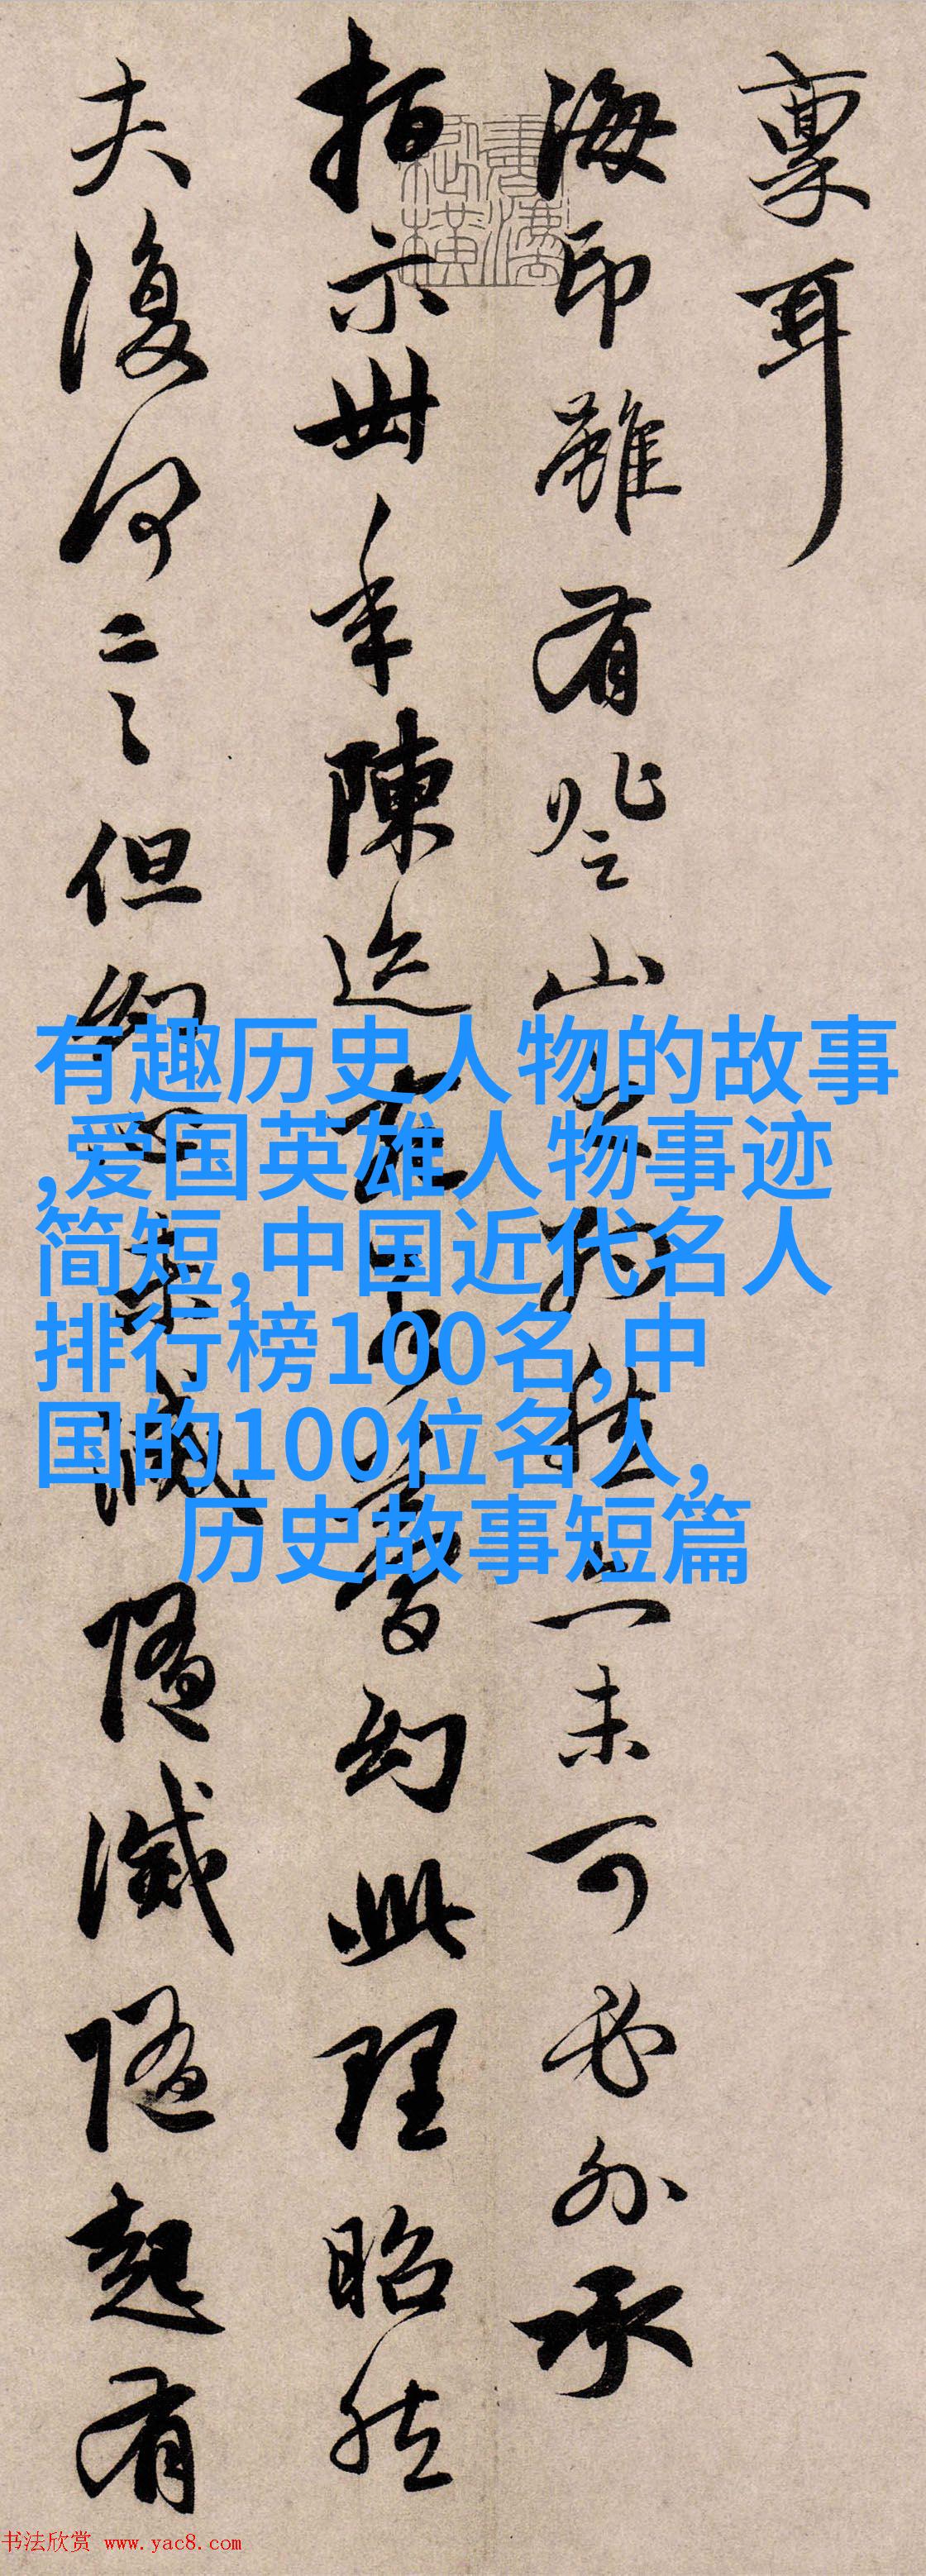 稟耳
海印雖有登山之約然亦未可必外承
指示卅年陳迹夢幻此理昭然
夫復何言但幻心未滅隨滅隨起有
有趣历史人物的故事
,爱国英雄人物事迹
简短,中国近代名人
排行榜100名,中
国的100位名人,
历史故事短篇
书法欣赏 www.yac8.com